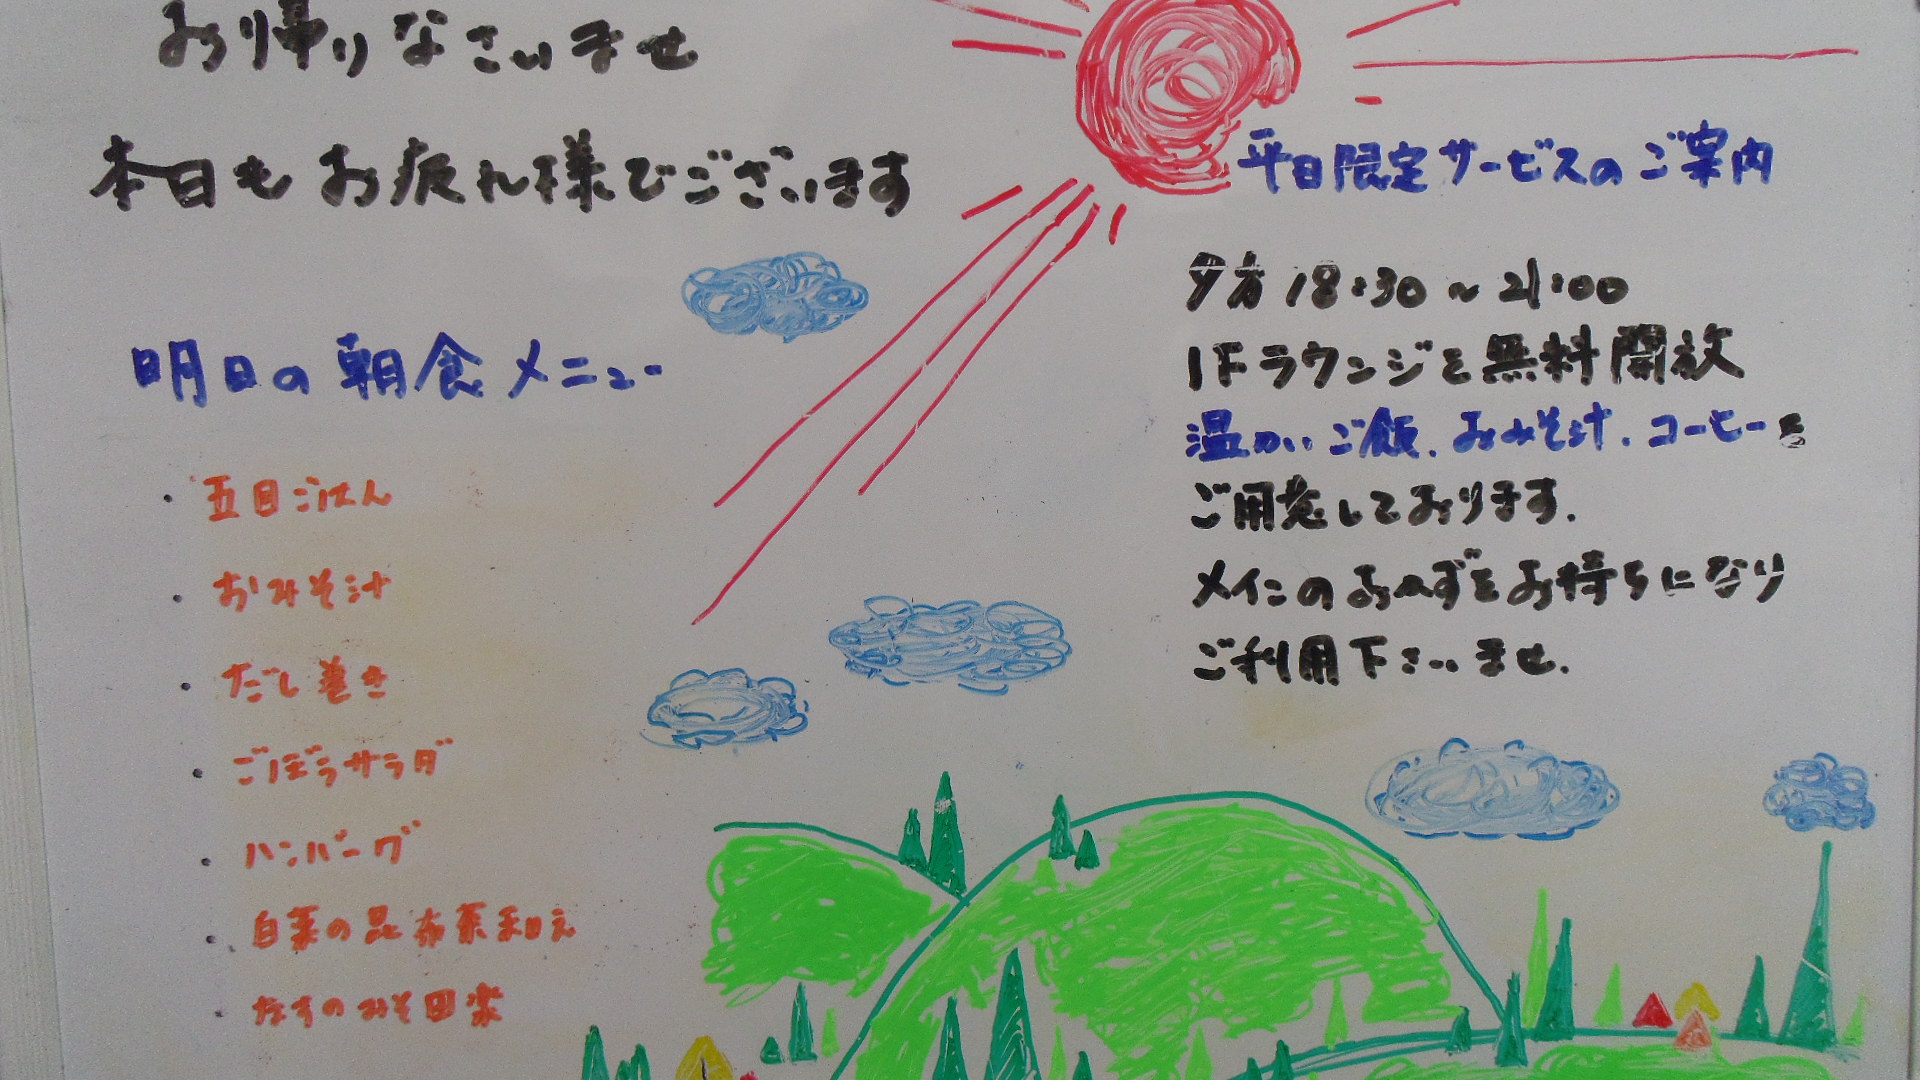 お帰りなさいませ
本日もお疲れ様でございます
明日の朝食メニュー
・五目ごはん
・おみそ汁
・だし巻き
・ごぼうサラダ
・ハンバーグ
・白菜の昆布茶和え
・なすのみそ田楽
平日限定サービスのご案内
夕方18:30～21:00
1Fラウンジを無料開放
温かいご飯、おみそ汁、コーヒーを
ご用意しております。
メインのおかずをお持ちになり
ご利用下さいませ。